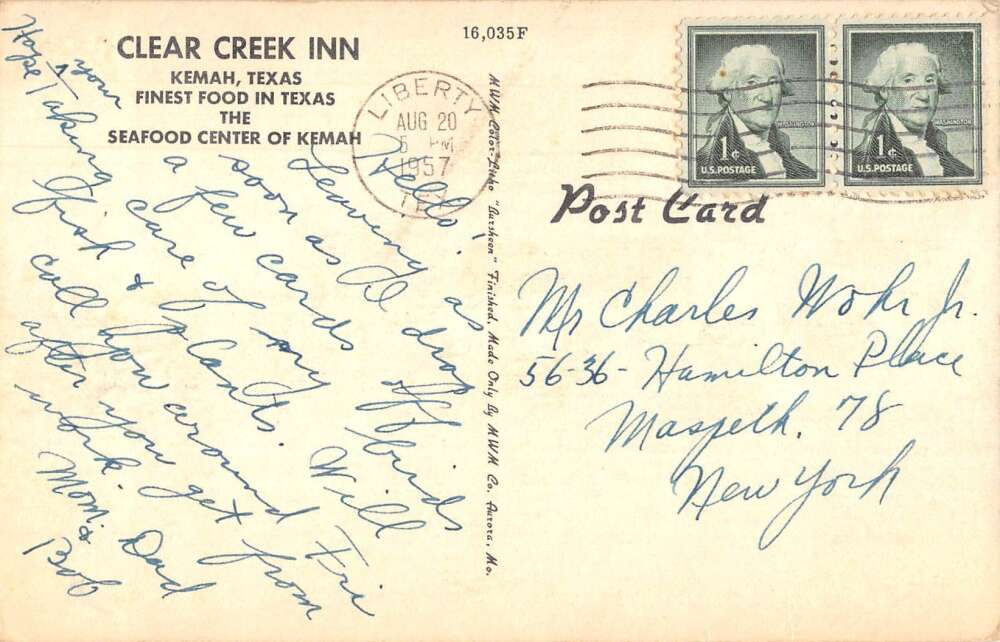 CLEAR CREEK INN
KEMAH, TEXAS
FINEST FOOD IN TEXAS
THE
SEAFOOD CENTER OF KEMAH
16,035F
LIBERTY
AUG 20
PM
1957
TEX
1¢
U.S. POSTAGE
WASHINGTON
1¢
U.S. POSTAGE
WASHINGTON
Post Card
Hello!
Leaving as
soon as I drop
a few cards off
Hope your
Taking care of my birds
fish & plants. Will
call around Fri
after you get from
work.
Mom & Dad
Bob
MWM Color-Litho "Bursheen" Finished, Made Only By MWM Co. Aurora, Mo.
Mr Charles Wohr Jr.
56-36- Hamilton Place
Maspeth. 78
New York